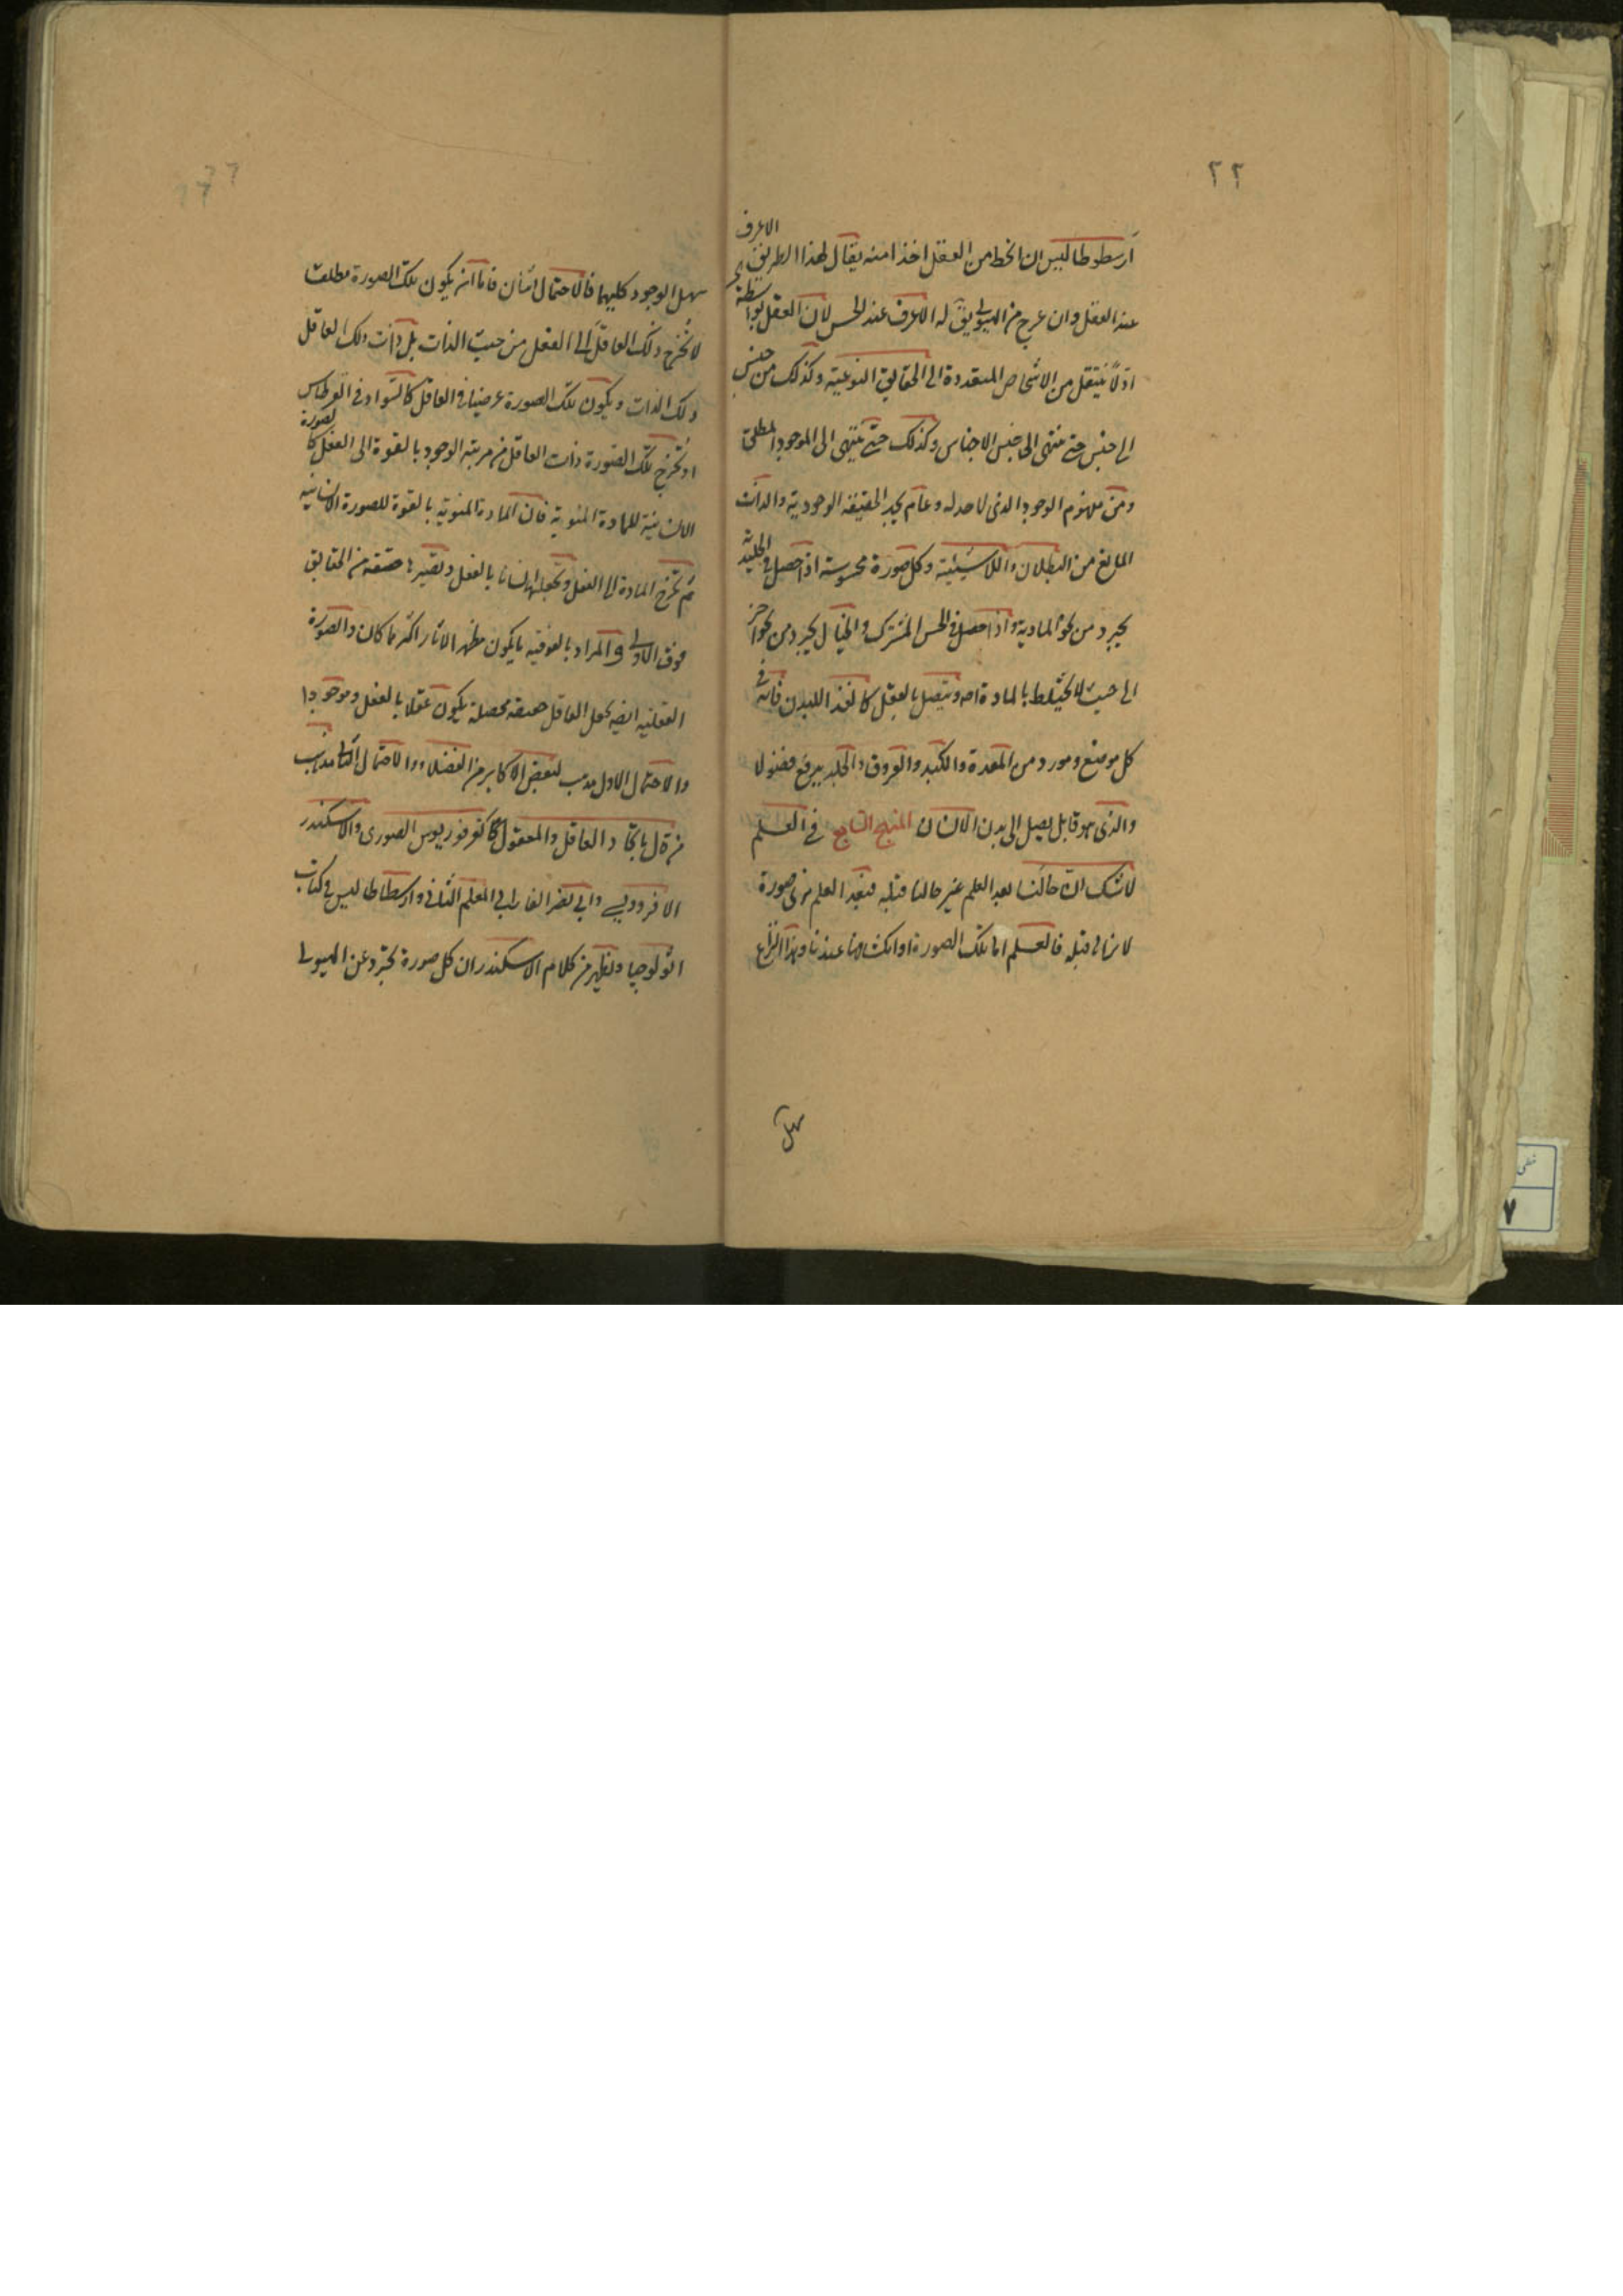 ٢٢
ارسطوطاليس ان انحط من العقل اخذا منه يقال لهذا الطريق الاعرف
عند العقل وان عرج من الهيولى يق له الاعرف عند الحس لان العقل بواسطة
اولا ينتقل من الاشخاص المتعددة الى الحقايق النوعية وكذلك من جنس
الى جنس حتى ينتهى الى جنس الاجناس وكذلك حتى ينتهى الى الموجود المطلق
ومن مفهوم الوجود الذى لا حد له وعام يجد الحقيقة الوجودية والذات
المانع من البطلان واللاشيئية وكل صورة محسوسة اذا حصل فى الجليدية
يجرد من نحو المادية واذا حصل فى الحس المشترك والخيال يجرد من نحو اخر
الى حيث لا يختلط بالمادة اصلا ويتصل بالعقل كالغذا للبدن فانه فى
كل موضع ومورد من المعدة والكبد والعروق والجلد يرفع فضولا
والذى هو قابل يصل الى بدن الانسان المنهج السابع فى العلم
لا شك ان حالنا بعد العلم غير حالنا قبله فبعد العلم نرى صورة
لا نرا لى قبله فالعلم اما تلك الصورة او انكشافها عندنا وهذا النزاع
سهل
سهل الوجود كليهما فالاحتمال اثنان فاما ان يكون تلك الصورة مطلقا
لا تخرج ذلك العاقل الى الفعل من حيث الذات بل ذات ذلك العاقل
ذلك الذات ويكون تلك الصورة عرضيا فى العاقل كالسواد فى القرطاس
او تخرج تلك الصورة ذات العاقل من مرتبة الوجود بالقوة الى الفعل كالصورة
الانسانية للمادة المنوية فان المادة المنوية بالقوة للصورة الانسانية
ثم تخرج المادة الى الفعل وتجعلها انسانا بالفعل وتصير بها حقيقة من الحقايق
فوق الاولى والمراد بالفوقية ما يكون مظهر الاثار اكثر مما كان والصورة
العقلية ايضا تجعل العاقل حقيقة محصلة يكون عقلا بالفعل وموجودا
والاحتمال الاول مذهب لبعض الاكابر من الفضلاء والاحتمال الثانى مذهب
من قال باتحاد العاقل والمعقول كفرفوريوس الصورى والاسكندر
الافرودسى وابى نصر الفارابى المعلم الثانى وارسطاطاليس فى كتاب
اثولوجيا ويظهر من كلام الاسكندر ان كل صورة تجرد عن الهيولى